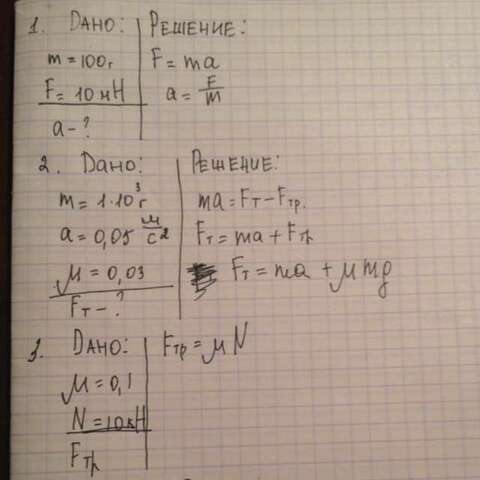 1. Дано:
m = 100г
F = 10 мН
a - ?
Решение:
F = ma
a = F/m
2. Дано:
m = 1·10³г
a = 0,05 м/с²
μ = 0,03
Fт - ?
Решение:
ma = Fт - Fтр.
Fт = ma + Fтр
Fт = ma + μmg
3. Дано:
μ = 0,1
N = 10кН
Fтр
Fтр = μN